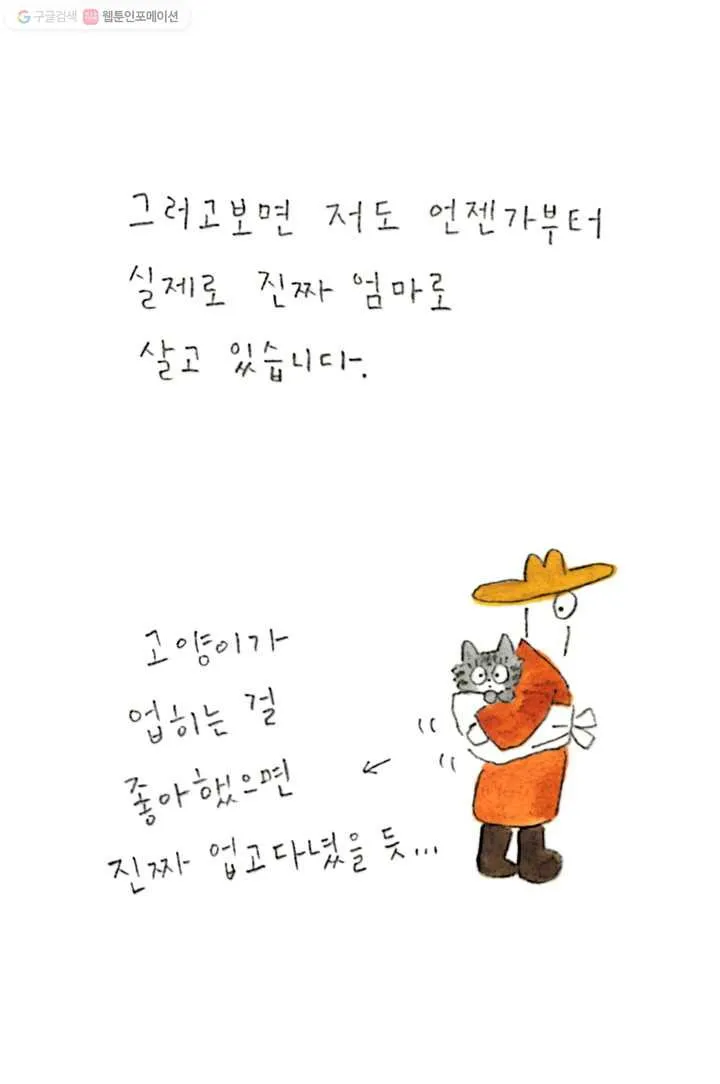 구글검색 웹툰인포메이션
그러고보면 저도 언젠가부터
실제로 진짜 엄마로
살고 있습니다.
고양이가
업히는 걸
좋아했으면
진짜 업고다녔을 듯...